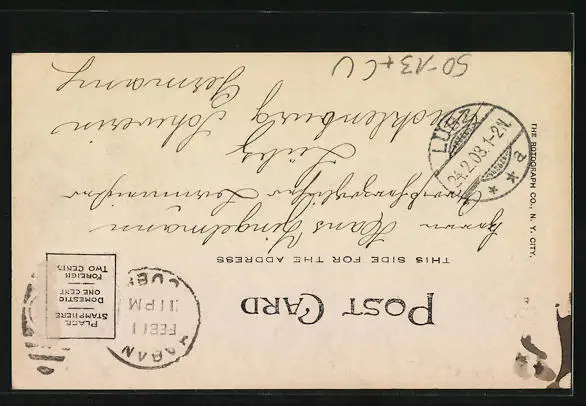 POST CARD
THIS SIDE FOR THE ADDRESS
PLACE
STAMP HERE
DOMESTIC
ONE CENT
FOREIGN
TWO CENTS
HABAN
FEB 11
11 PM
CUBA
Herrn Hans Zingelmann
Lübz
Mecklenburg Schwerin
Germany
LÜBZ
24.2.08.1-2N.
* a *
THE ROTOGRAPH CO., N. Y. CITY.
50-13+CU